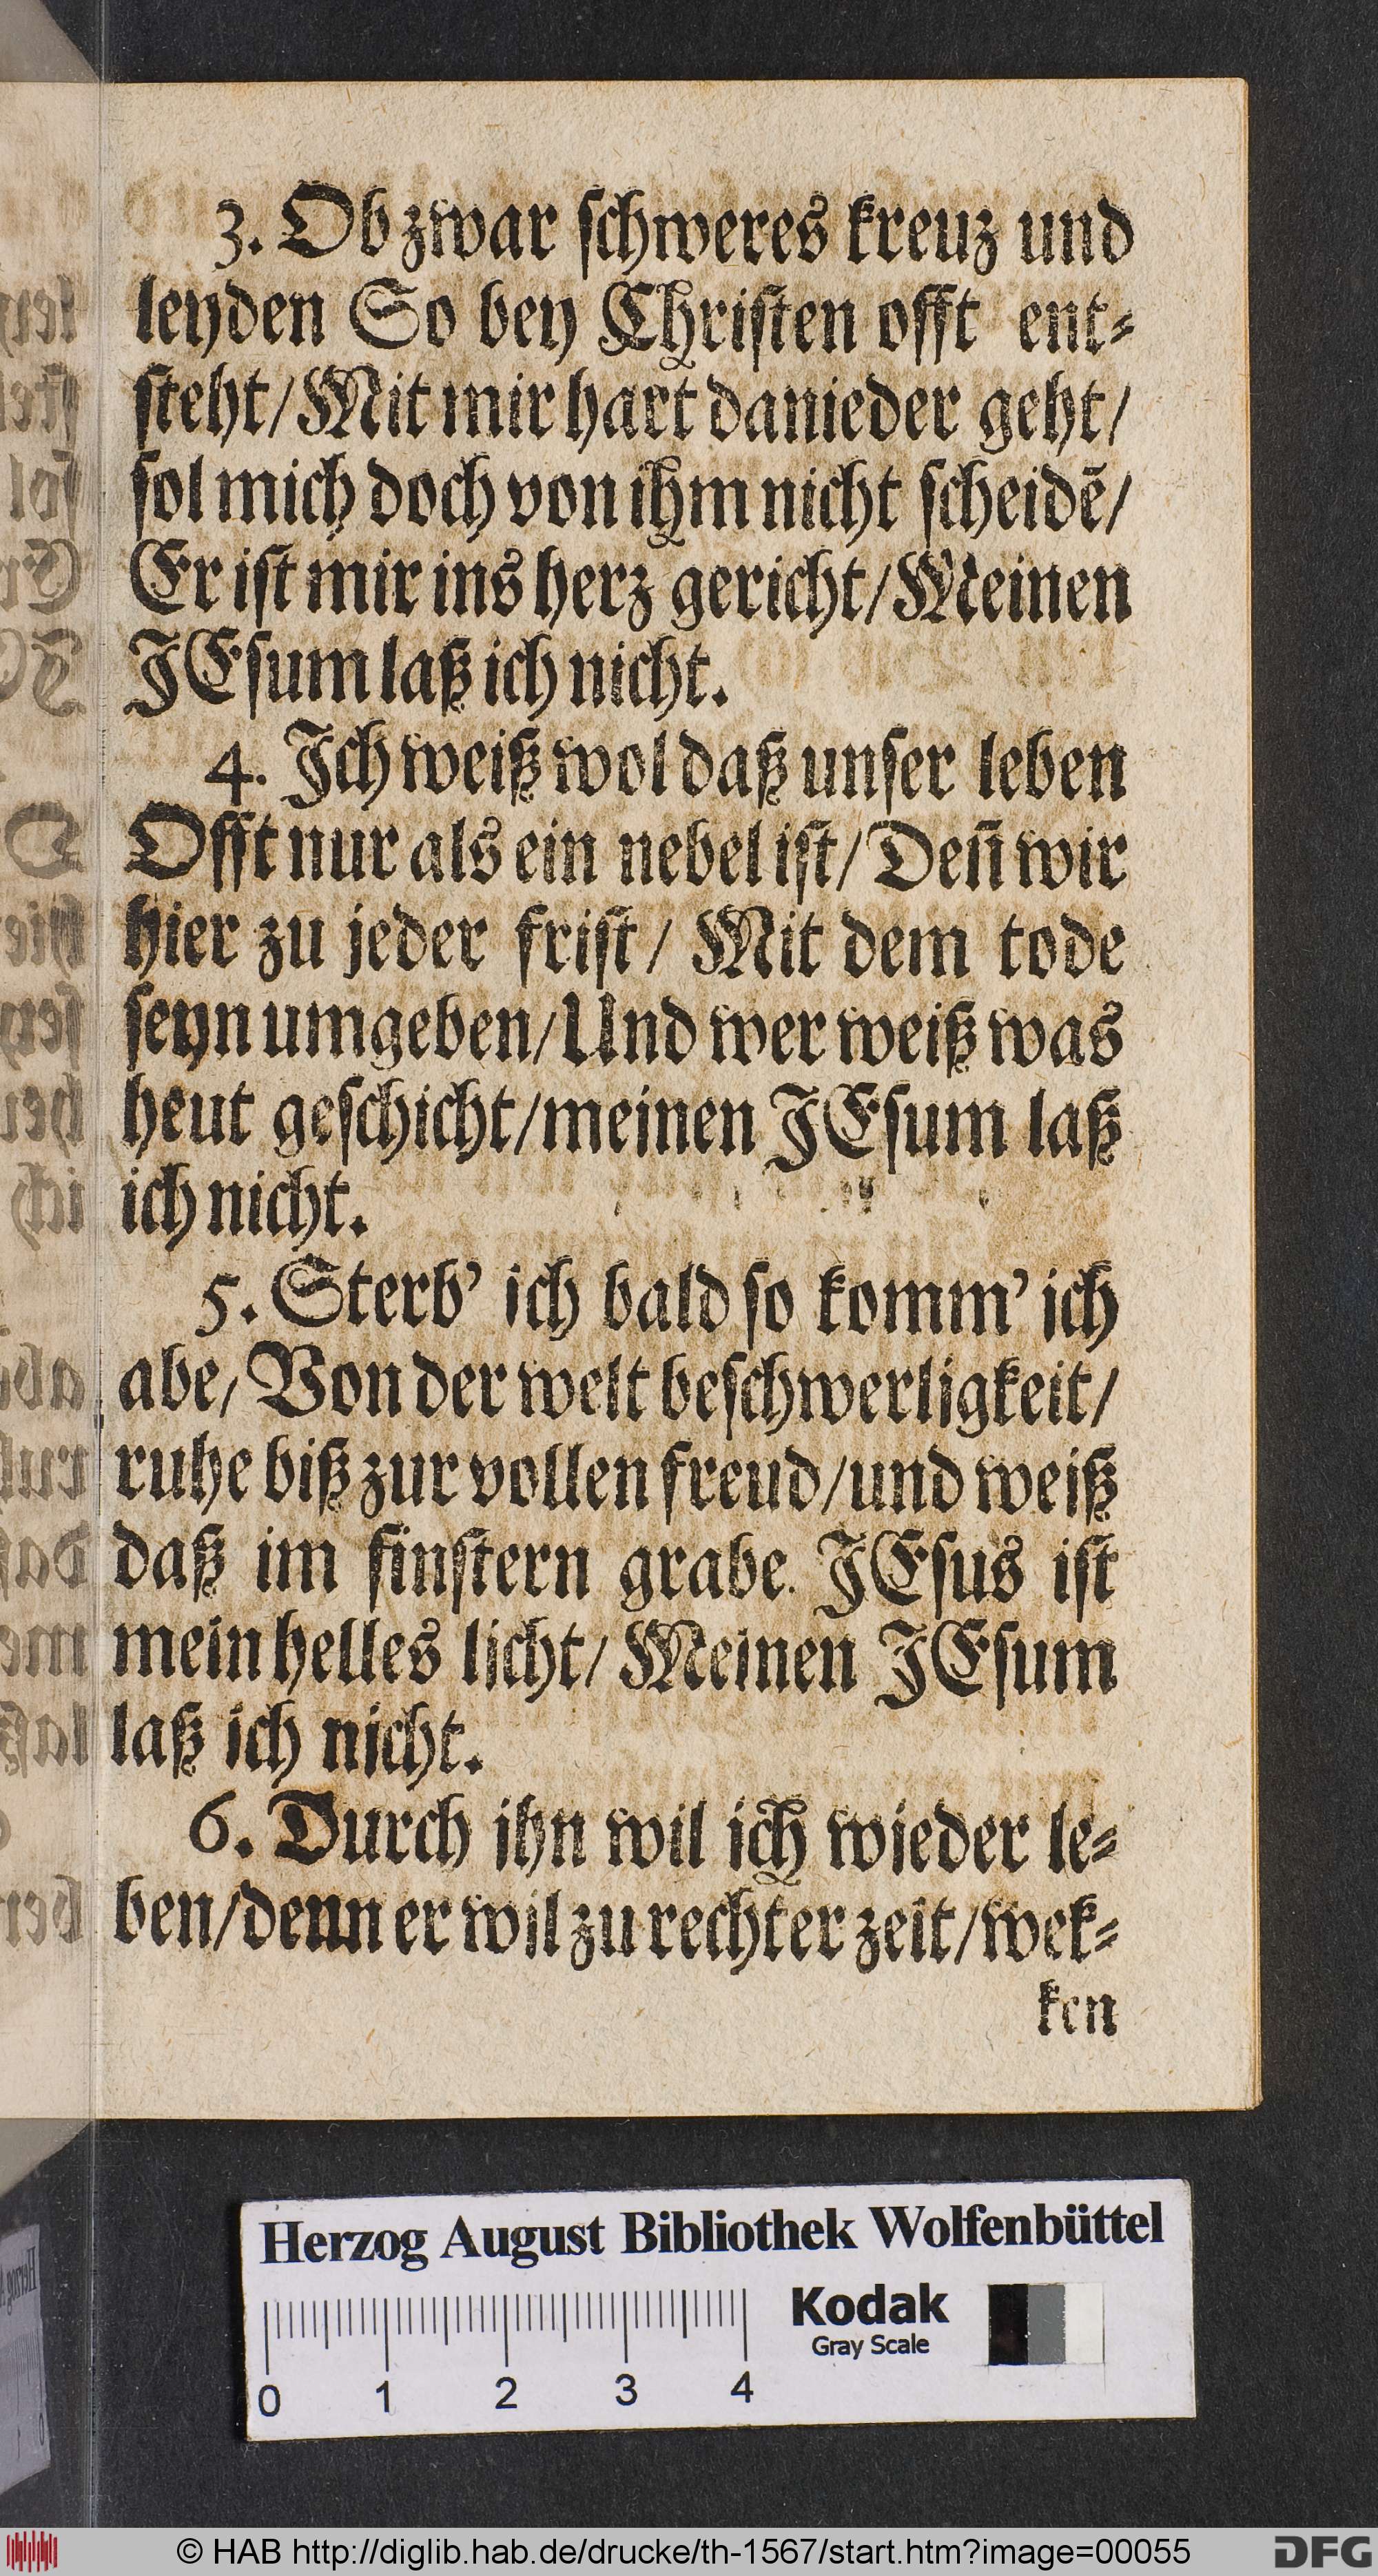 3. Ob zwar ſchweres kreuz und
leyden So bey Chriſten offt ent⸗
ſteht/Mit mir hart danieder geht/
ſol mich doch von ihm nicht ſcheidẽ/
Er iſt mir ins herz gericht/Meinen
JEſum laß ich nicht.
4. Ich weiß wol daß unſer leben
Offt nur als ein nebel iſt/Deñ wir
hier zu jeder friſt/ Mit dem tode
ſeyn umgeben/Und wer weiß was
heut geſchicht/meinen JEſum laß
ich nicht.
5. Sterb' ich bald ſo komm' ich
abe/ Von der welt beſchwerligkeit/
ruhe biß zur vollen freud/und weiß
daß im finſtern grabe. JEſus iſt
mein helles licht/ Meinen JEſum
laß ich nicht.
6. Durch ihn wil ich wieder le⸗
ben/denn er wil zu rechter zeit/wek⸗
ken
Herzog August Bibliothek Wolfenbüttel
Kodak
Gray Scale
0 1 2 3 4
© HAB http://diglib.hab.de/drucke/th-1567/start.htm?image=00055
DFG